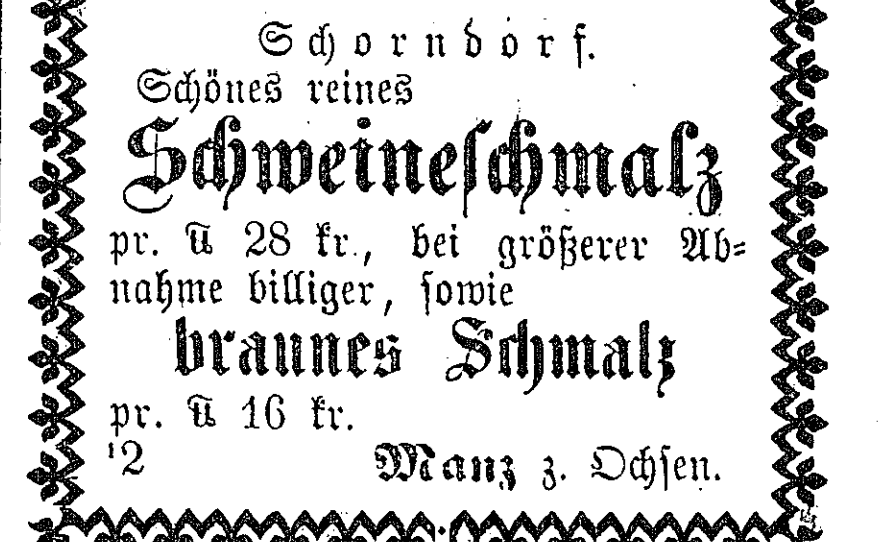 Schorndorf.
Schönes reines
Schweineschmalz
pr. ℔ 28 kr., bei größerer Ab-
nahme billiger, sowie
braunes Schmalz
pr. ℔ 16 kr.
'2 Manz z. Ochsen.